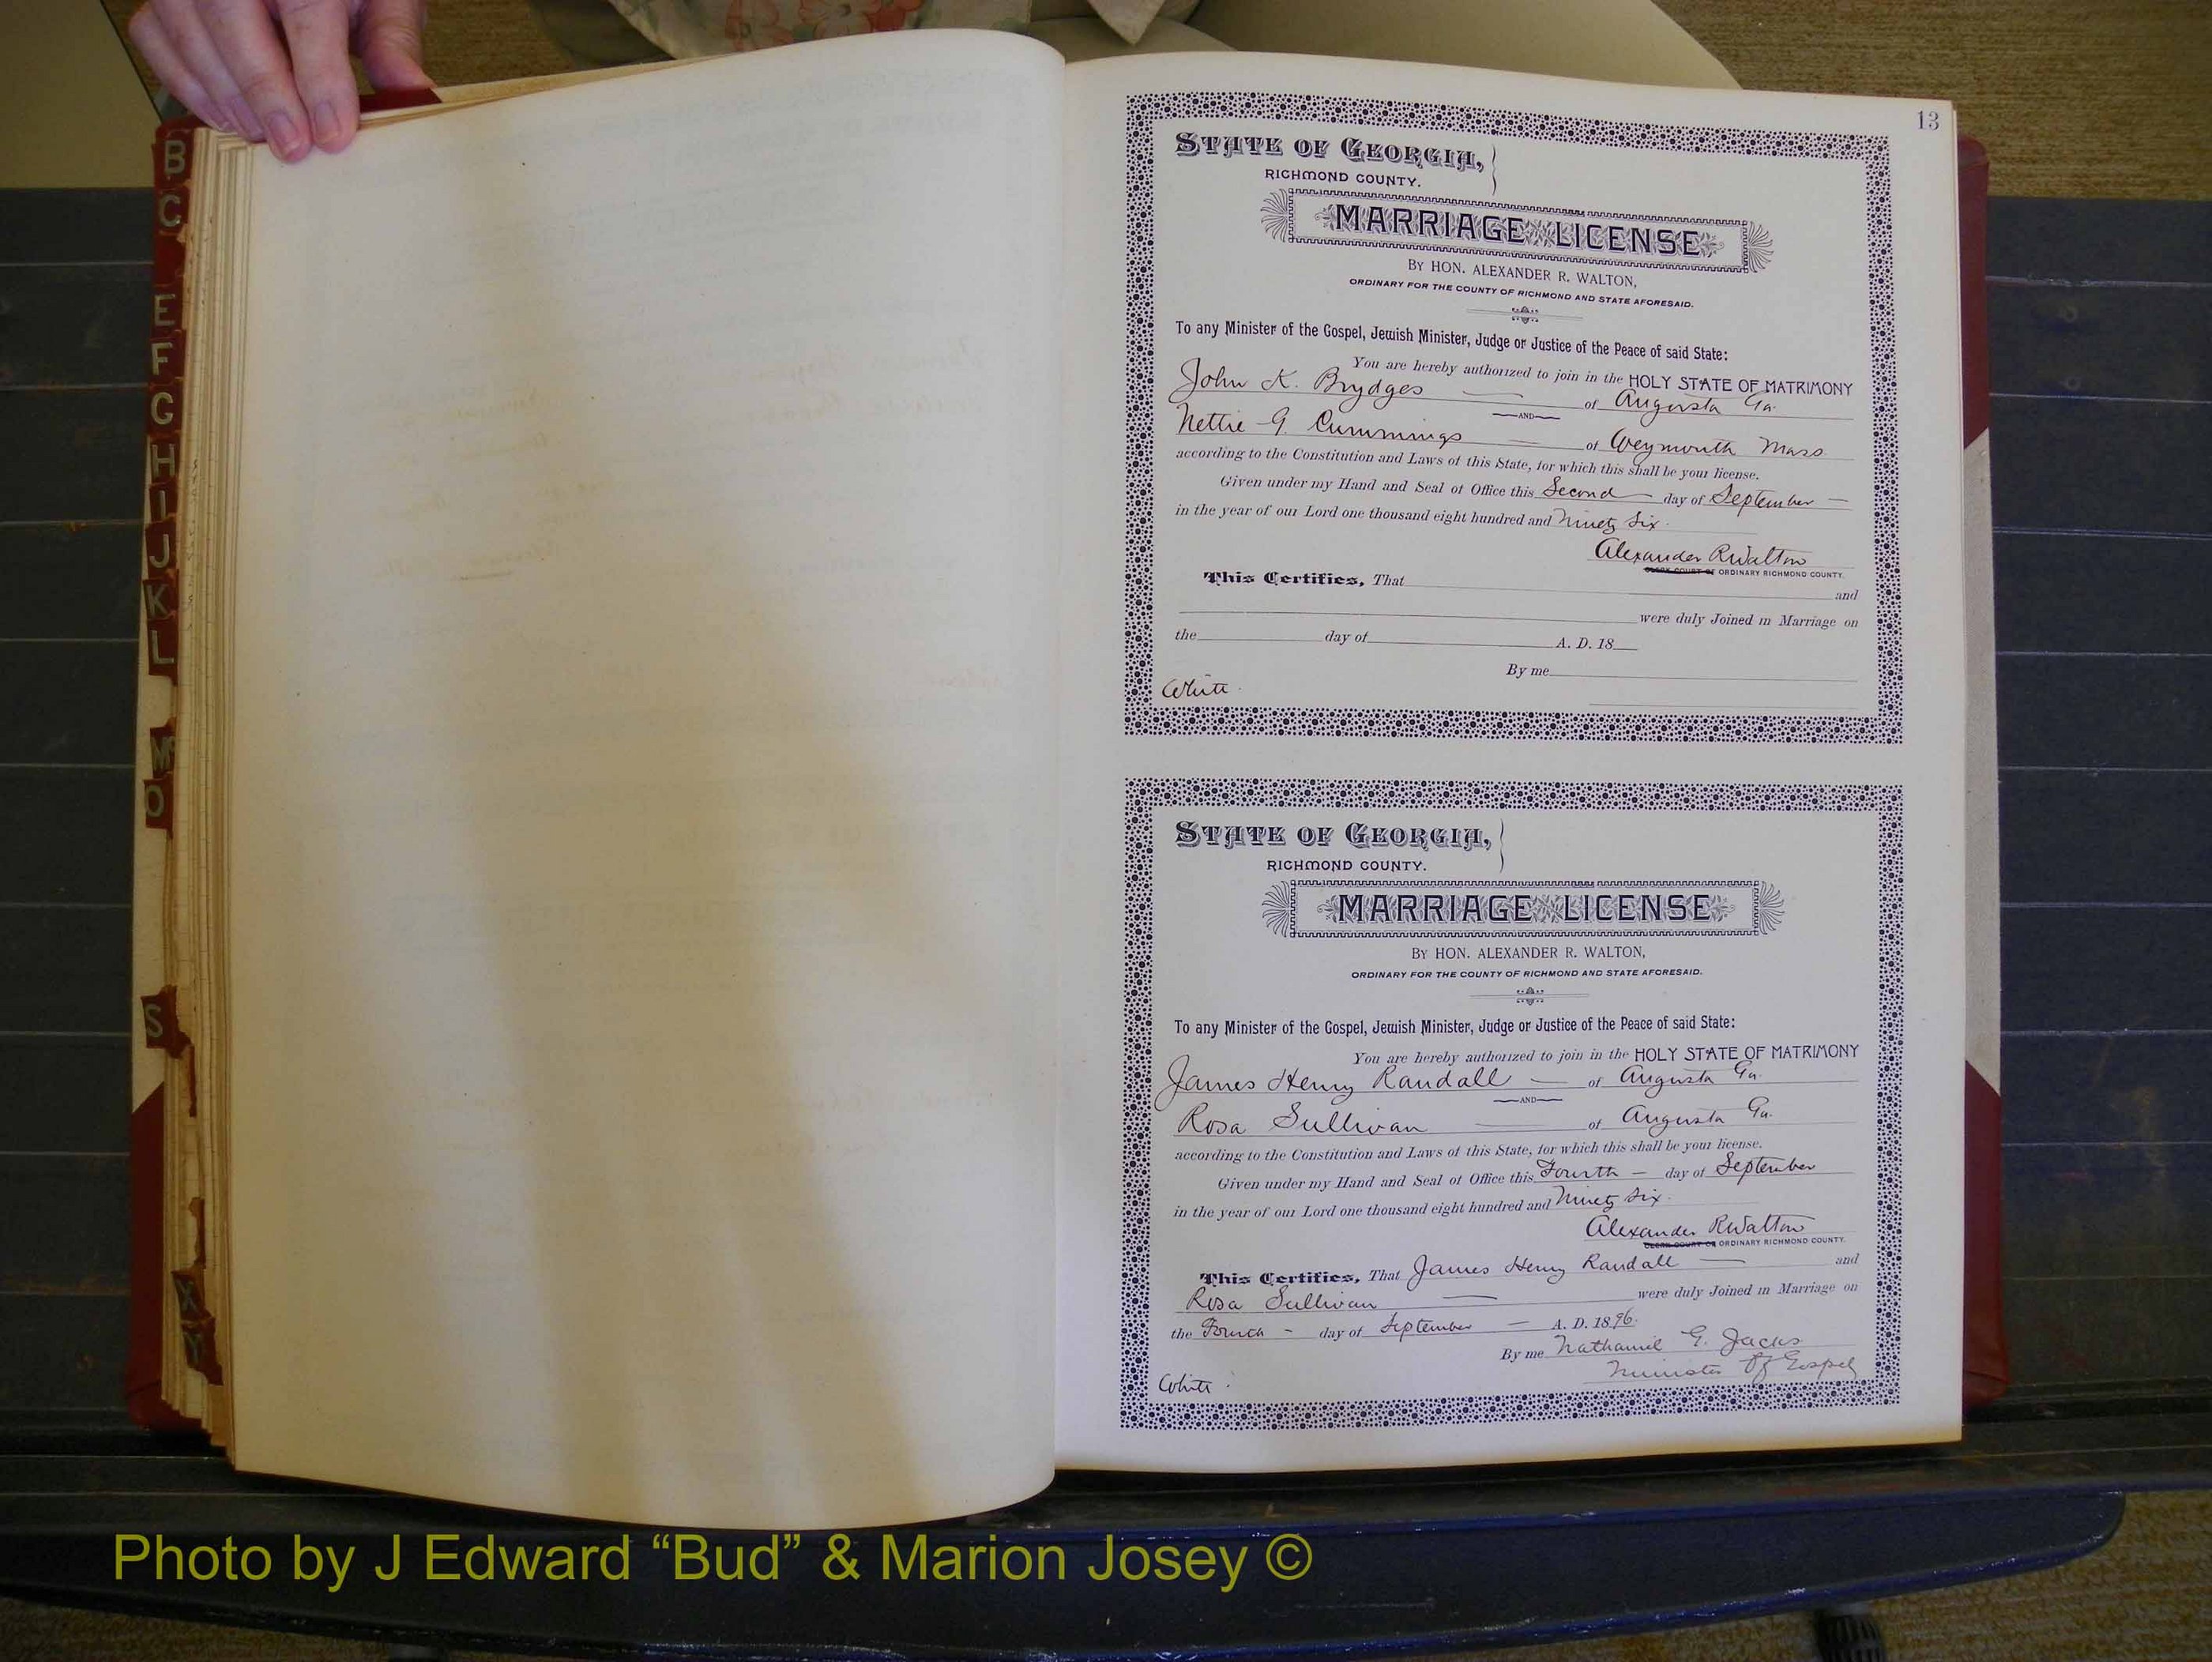 B
C
E
F
G
H
I
J
K
L
M
O
S
X
Y
13
STATE OF GEORGIA,
RICHMOND COUNTY.
MARRIAGE LICENSE
BY HON. ALEXANDER R. WALTON,
ORDINARY FOR THE COUNTY OF RICHMOND AND STATE AFORESAID.
To any Minister of the Gospel, Jewish Minister, Judge or Justice of the Peace of said State:
You are hereby authorized to join in the HOLY STATE OF MATRIMONY
John K. Brydges — of Augusta Ga.
—AND—
Nettie G. Cummings — of Weymouth Mass
according to the Constitution and Laws of this State, for which this shall be your license.
Given under my Hand and Seal of Office this Second — day of September —
in the year of our Lord one thousand eight hundred and Ninety Six.
Alexander R Walton
CLERK COURT OF ORDINARY RICHMOND COUNTY.
This Certifies, That and
were duly Joined in Marriage on
the day of A. D. 18
By me
White.
STATE OF GEORGIA,
RICHMOND COUNTY.
MARRIAGE LICENSE
BY HON. ALEXANDER R. WALTON,
ORDINARY FOR THE COUNTY OF RICHMOND AND STATE AFORESAID.
To any Minister of the Gospel, Jewish Minister, Judge or Justice of the Peace of said State:
You are hereby authorized to join in the HOLY STATE OF MATRIMONY
James Henry Randall — of Augusta Ga.
—AND—
Rosa Sullivan — of Augusta Ga.
according to the Constitution and Laws of this State, for which this shall be your license.
Given under my Hand and Seal of Office this Fourth — day of September
in the year of our Lord one thousand eight hundred and Ninety Six.
Alexander R Walton
CLERK COURT OF ORDINARY RICHMOND COUNTY.
This Certifies, That James Henry Randall — and
Rosa Sullivan — were duly Joined in Marriage on
the Fourth — day of September — A. D. 1896.
By me Nathaniel G. Jacks
Minister Of Gospel
White.
Photo by J Edward “Bud” & Marion Josey ©